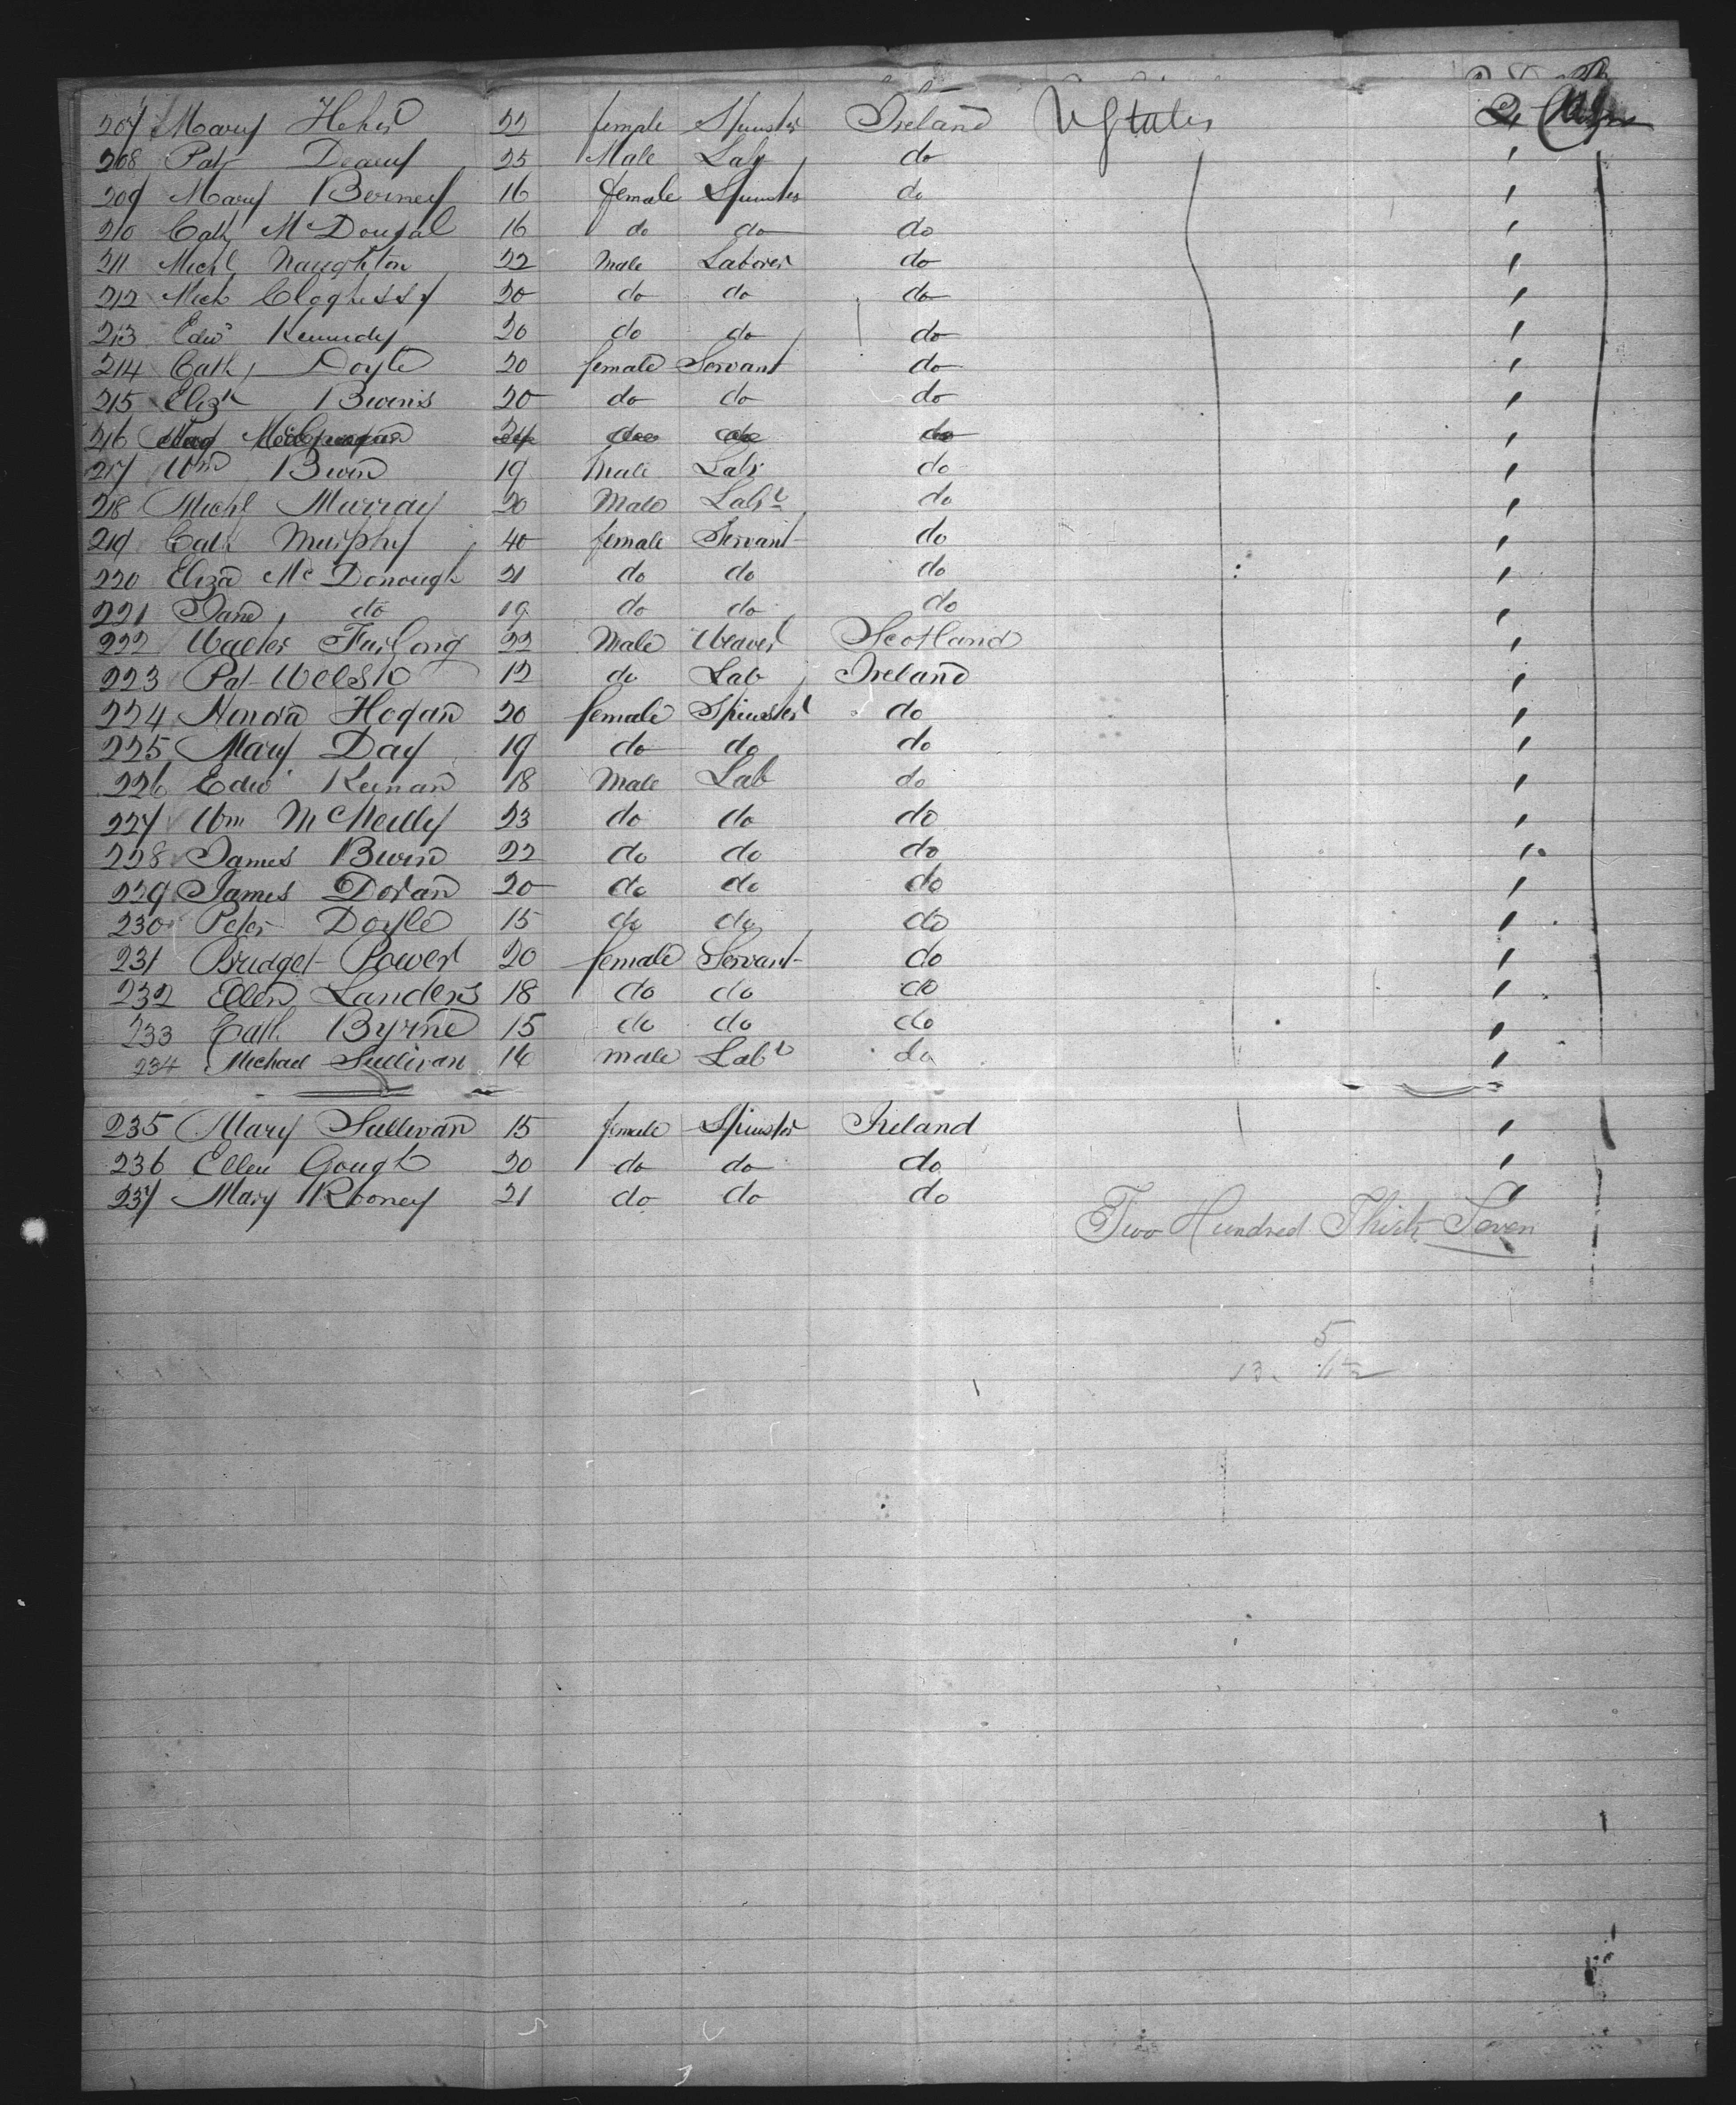 207 Mary Heher 22 female Spinster Ireland U States
208 Pat 25 Male Lab do
209 Mary Berney 16 female Spinster do
210 Cath McDougal 16 do do do
211 Michl Naughton 22 Male Laborer do
212 Mich Cloghessy 20 do do do
213 Edwd Kennedy 20 do do do
214 Cath Doyle 20 female Servant do
215 Elizth 20 do do do
216 do
217 Wm 19 Male Labr do
218 Michl Murray 20 Male Labr do
219 Cath Murphy 40 female Servant do
220 Eliza McDonough 21 do do do
221 Jane do 19 do do do
222 Walter Furlong 22 Male Weaver Scotland
223 Pat Welsh 12 do Lab Ireland
224 Honora Hogan 20 female Spinster do
225 Mary Day 19 do do do
226 Edwd Keenan 18 Male Lab do
227 Wm 23 do do do
228 James 22 do do do
229 James Doran 20 do do do
230 Peter Doyle 15 do do do
231 Bridget Power 20 female Servant do
232 Ellen Landers 18 do do do
233 Cath Byrne 15 do do do
234 Michael Sullivan 16 male Labr do
235 Mary Sullivan 15 female Spinster Ireland
236 Ellen Gough 20 do do do
237 Mary Rooney 21 do do do
Two Hundred Thirty Seven
5
13